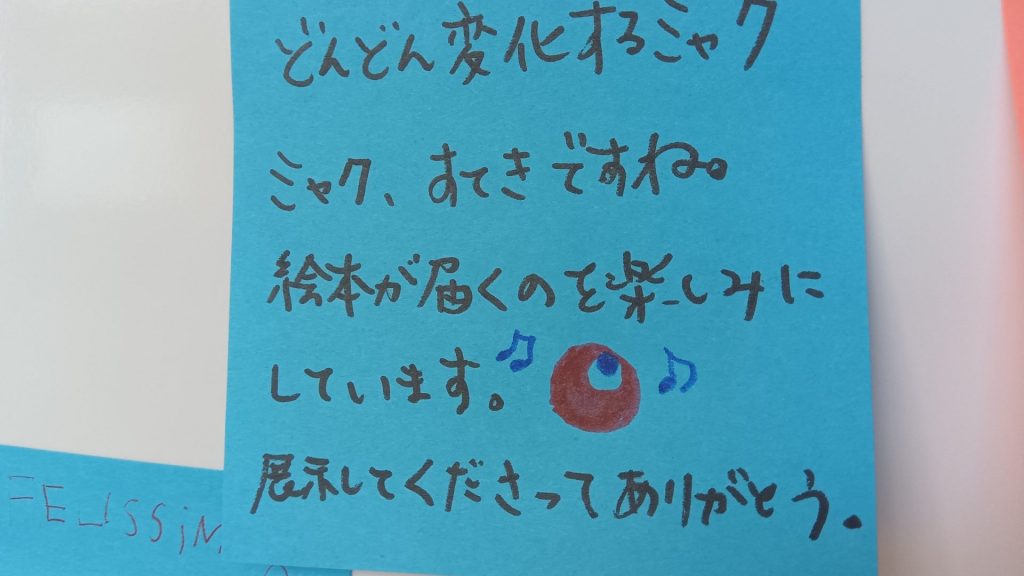 どんどん変化するミャク
ミャク、すてきですね。
絵本が届くのを楽しみに
しています。
展示してくださってありがとう。